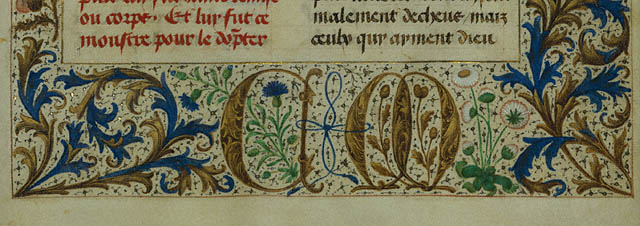 ou corps. Et luy fut ce
monstre pour le dõpter
malement decheuz, maiz
ceulx qui ayment dieu
C M